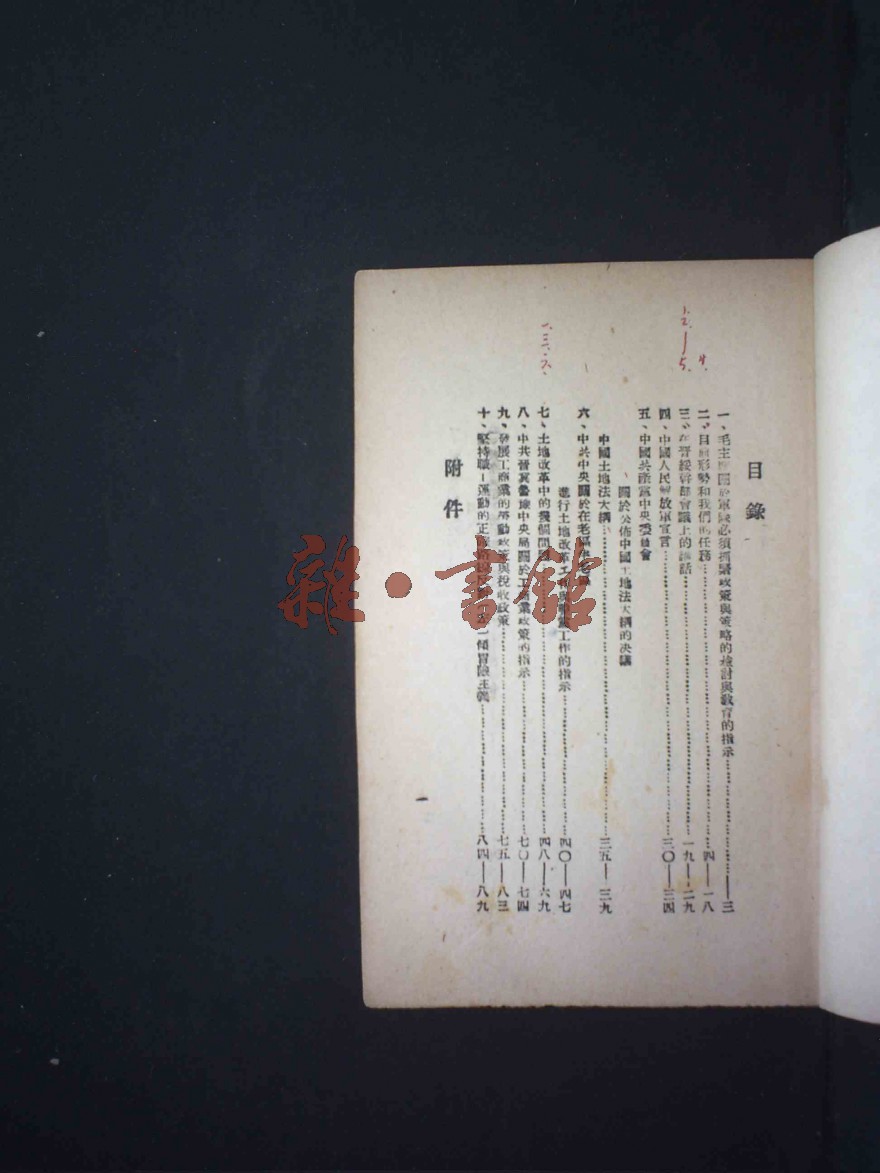 目錄
一、毛主席關於軍隊必須抓緊政策與策略的檢討與教育的指示……一——三
二、目前形勢和我們的任務……四——一八
三、在晉綏幹部會議上的講話……一九——二九
四、中國人民解放軍宣言……三〇——三四
五、中國共產黨中央委員會
關於公佈中國土地法大綱的決議
中國土地法大綱……三五——三九
六、中共中央關於在老區半老區
進行土地改革工作與整黨工作的指示……四〇——四七
七、土地改革中的幾個問題……四八——六九
八、中共晉冀魯豫中央局關於工商業政策的指示……七〇——七四
九、發展工商業的勞動政策與稅收政策……七五——八三
十、堅持職工運動的正確路線反對「左」傾冒險主義……八四——八九
附件
一
1.2.
5.
4.
一.三.六.
雜·書館